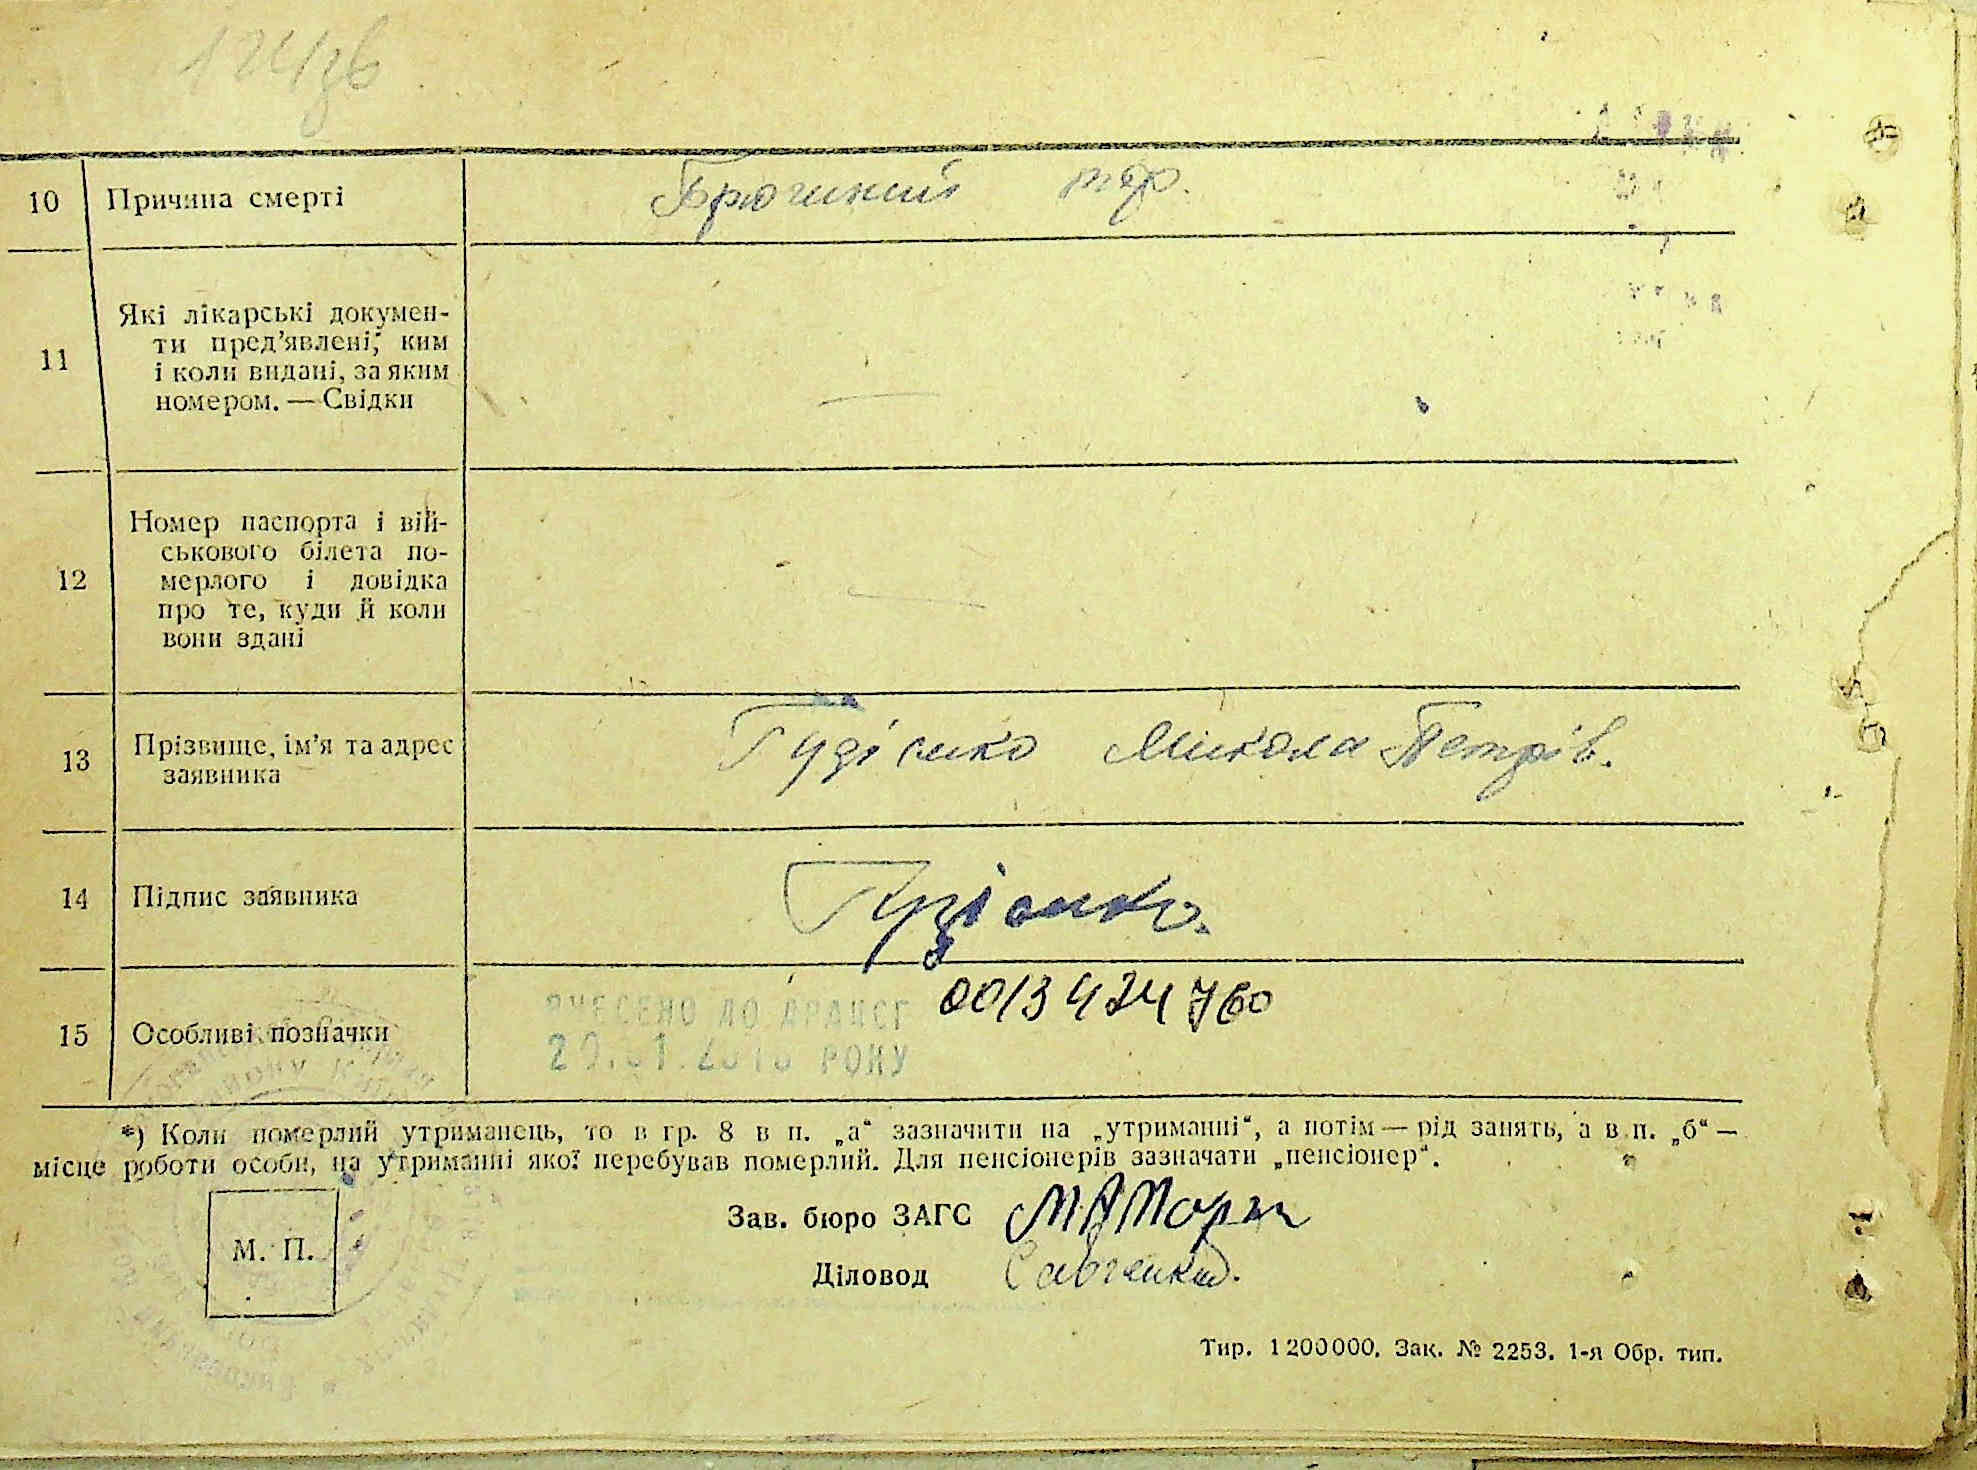 124зв
10 Причина смерті Брюшний тиф.
11 Які лікарські докумен-
ти пред’явлені, ким
і коли видані, за яким
номером. — Свідки —
12 Номер паспорта і вій-
ськового білета по-
мерлого і довідка
про те, куди й коли
вони здані —
13 Прізвище, ім’я та адрес
заявника Гудісико Микола Петрів.
14 Підпис заявника
15 Особливі позначки ВНЕСЕНО ДО ДРАЦСГ 0013424760
РОКУ
*) Коли померлий утриманець, то в гр. 8 в п. „а“ зазначити на „утриманні“, а потім — рід занять, а в п. „б“ —
місце роботи особи, на утриманні якої перебував померлий. Для пенсіонерів зазначати „пенсіонер“.
Зав. бюро ЗАГС
М. П.
Діловод Савченко.
Тир. 1200000. Зак. № 2253. 1-я Обр. тип.